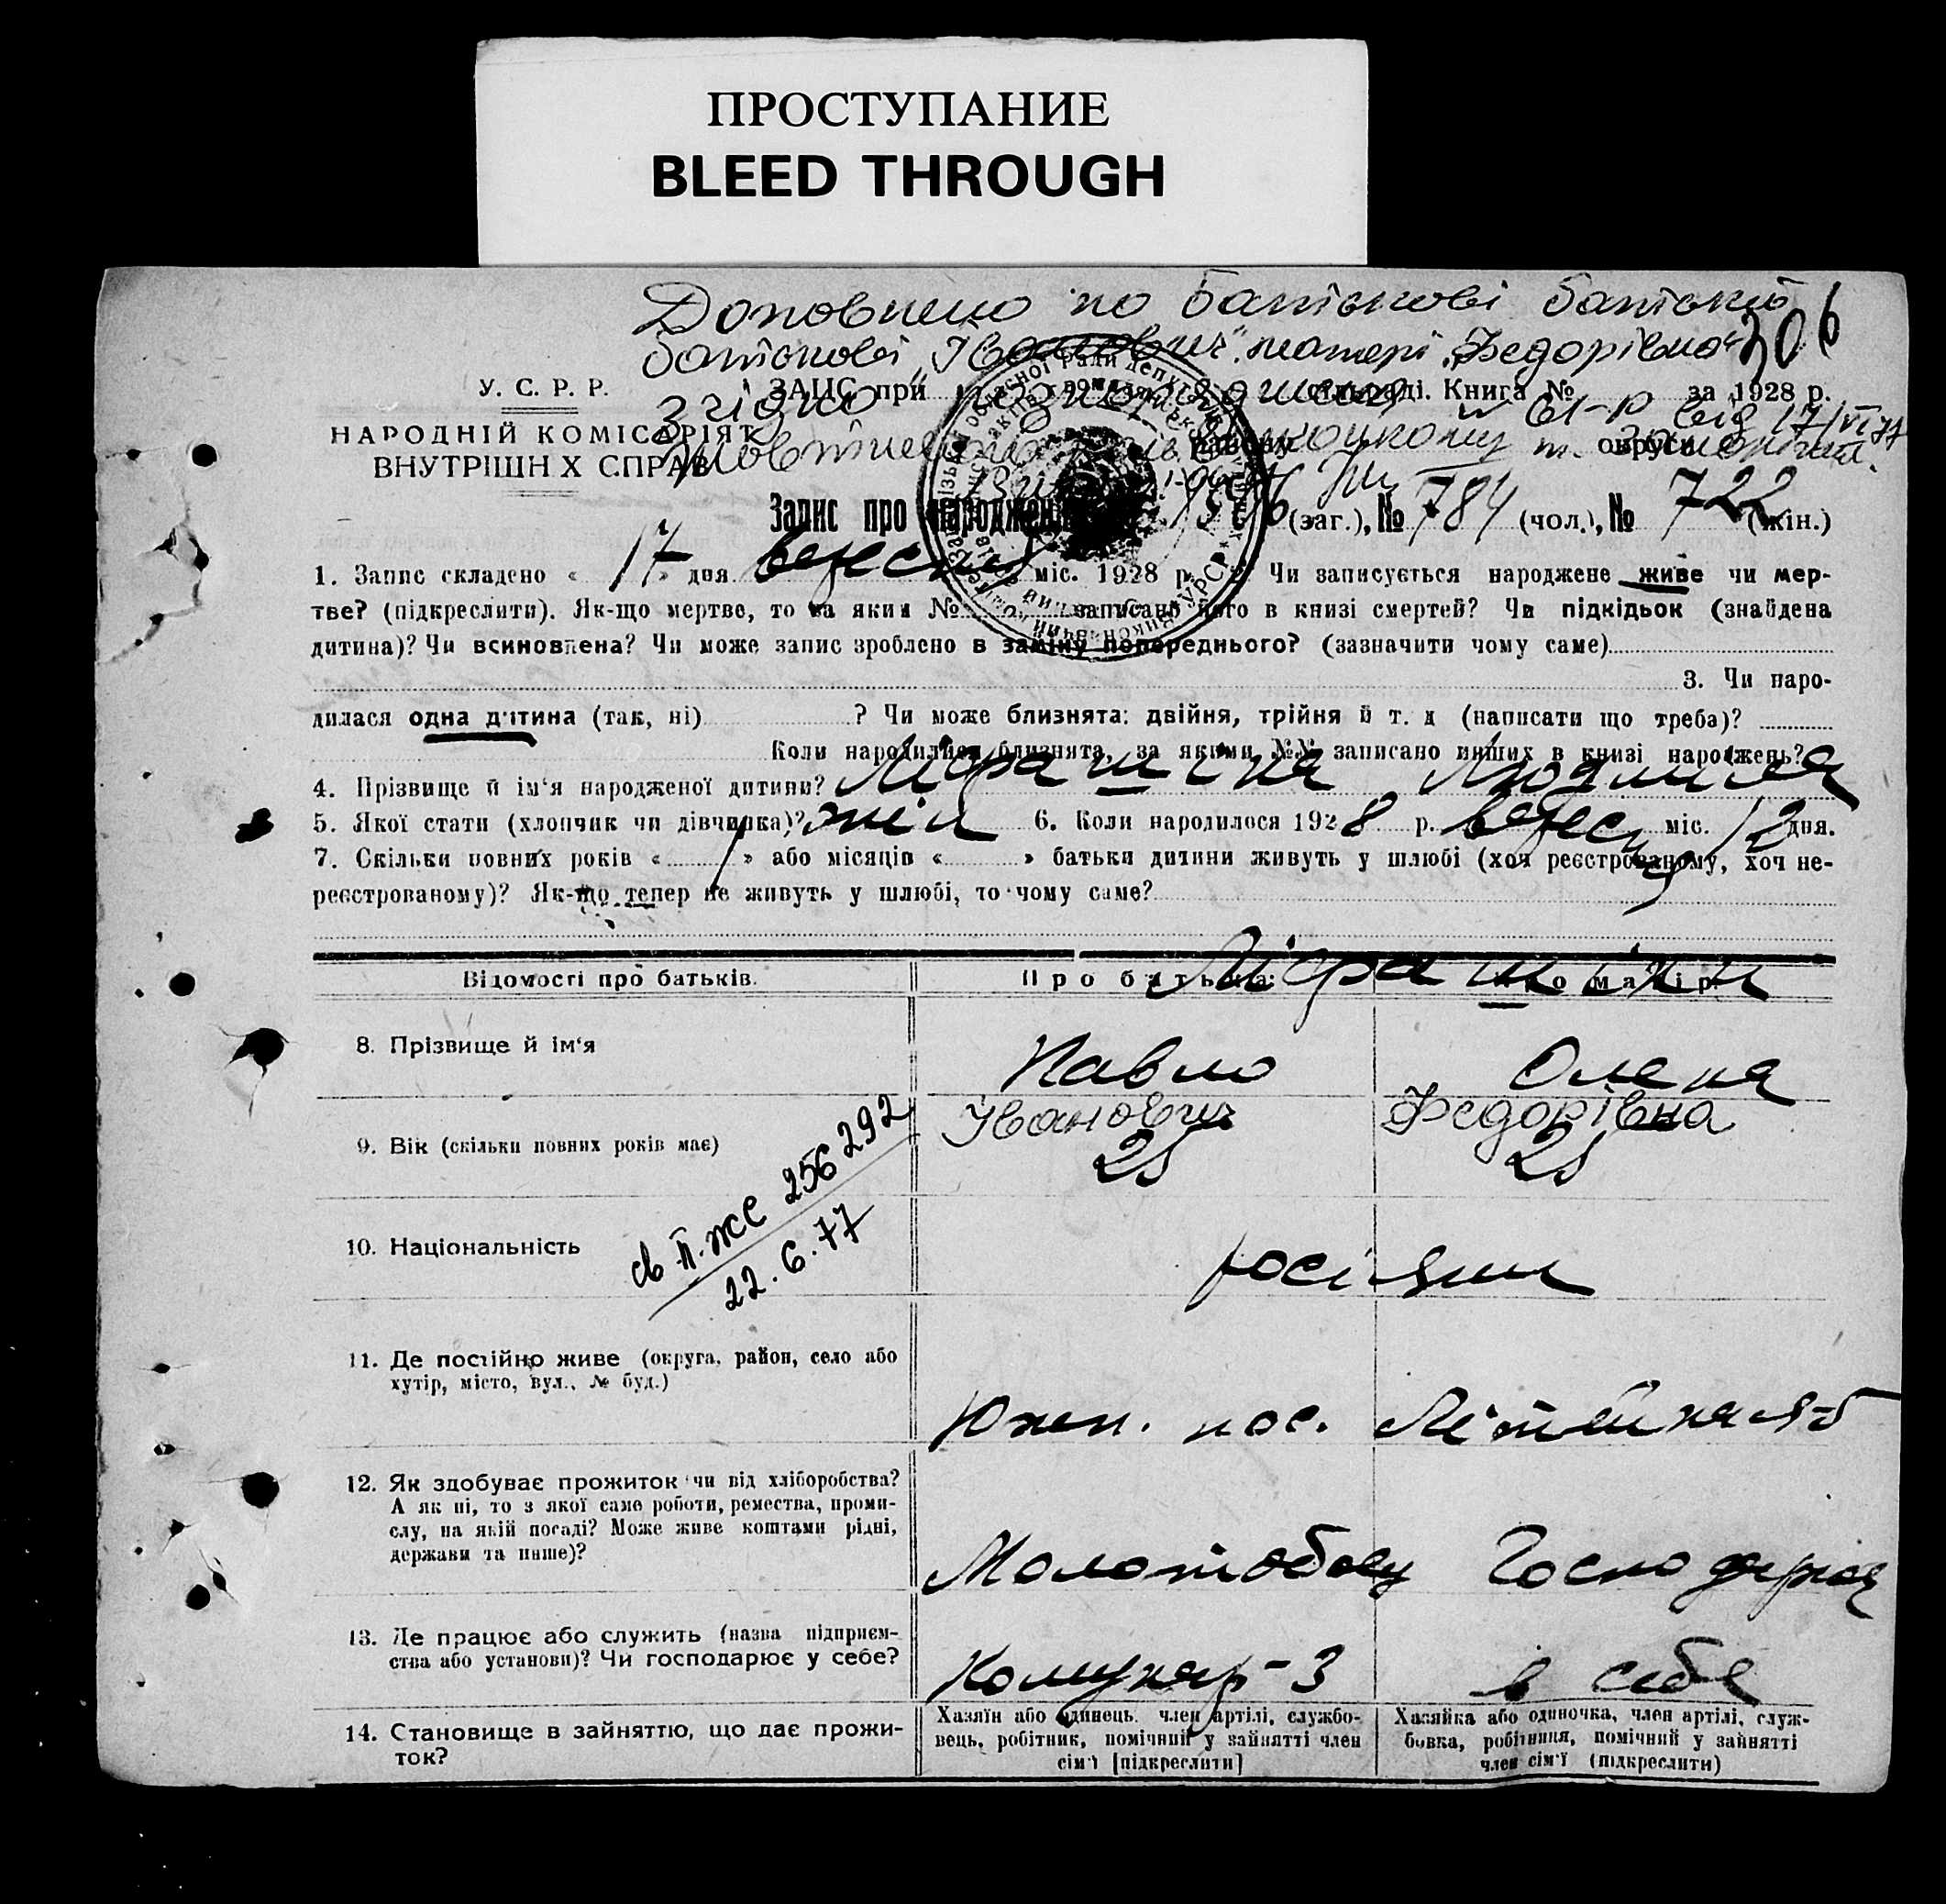 ПРОСТУПАНИЕ
BLEED THROUGH
Доповнено по батькові батькові
батькові „Іванович“, матері „Федорівна“ 306
У. С. Р. Р. ЗАЦС при сільраді. Книга № за 1928 р.
згідно розпорядження 61-р від 17/VI 77
НАРОДНІЙ КОМІСАРІЯТ району округи
ВНУТРІШН Х СПРАВ
Запис про народження 1506 (заг.), № 784 (чол.), № 722 (жін.)
1. Запис складено « 17 » дня вересня міс. 1928 р. 2. Чи записується народжене живе чи мер-
тве? (підкреслити). Як-що мертве, то за яким № записано його в книзі смертей? Чи підкідьок (знайдена
дитина)? Чи всиновлена? Чи може запис зроблено в заміну попереднього? (зазначити чому саме)
3. Чи наро-
дилася одна дитина (так, ні) ? Чи може близнята: двійня, трійня й т. д (написати що треба)?
Коли народилися близнята, за якими №№ записано инших в книзі народжень?
4. Прізвище й ім‘я народженої дитини? Людмила
5. Якої стати (хлопчик чи дівчинка)? жін 6. Коли народилося 1928 р. вересня міс. 12 дня.
7. Скільки повних років « 1 » або місяців « » батьки дитини живуть у шлюбі (хоч реєстрованому, хоч не-
реєстрованому)? Як-що тепер не живуть у шлюбі, то чому саме?
Відомості про батьків. Про батька: Про матір:
8. Прізвище й ім‘я Павло Олена
Іванович Федорівна
9. Вік (скільки повних років має) 25 25
св II-ЖС 256292
22.6.77
10. Національність росіяни
11. Де постійно живе (округа, район, село або
хутір, місто, вул., № буд.)
Южн. пос.
12. Як здобуває прожиток чи від хліборобства?
А як ні, то з якої саме роботи, ремества, проми-
слу, на якій посаді? Може живе коштами рідні,
держави та инше)?
Молотобоец Господарка
13. Де працює або служить (назва підприєм-
ства або установи)? Чи господарює у себе?
Комунар-3 в себе
14. Становище в зайняттю, що дає прожи-
ток?
Хазяїн або одинець, член артілі, службо-
вець, робітник, помічний у зайнятті член
сім‘ї [підкреслити]
Хазяйка або одиночка, член артілі, служ-
бовка, робітниця, помічний у зайнятті
член сім‘ї (підкреслити)